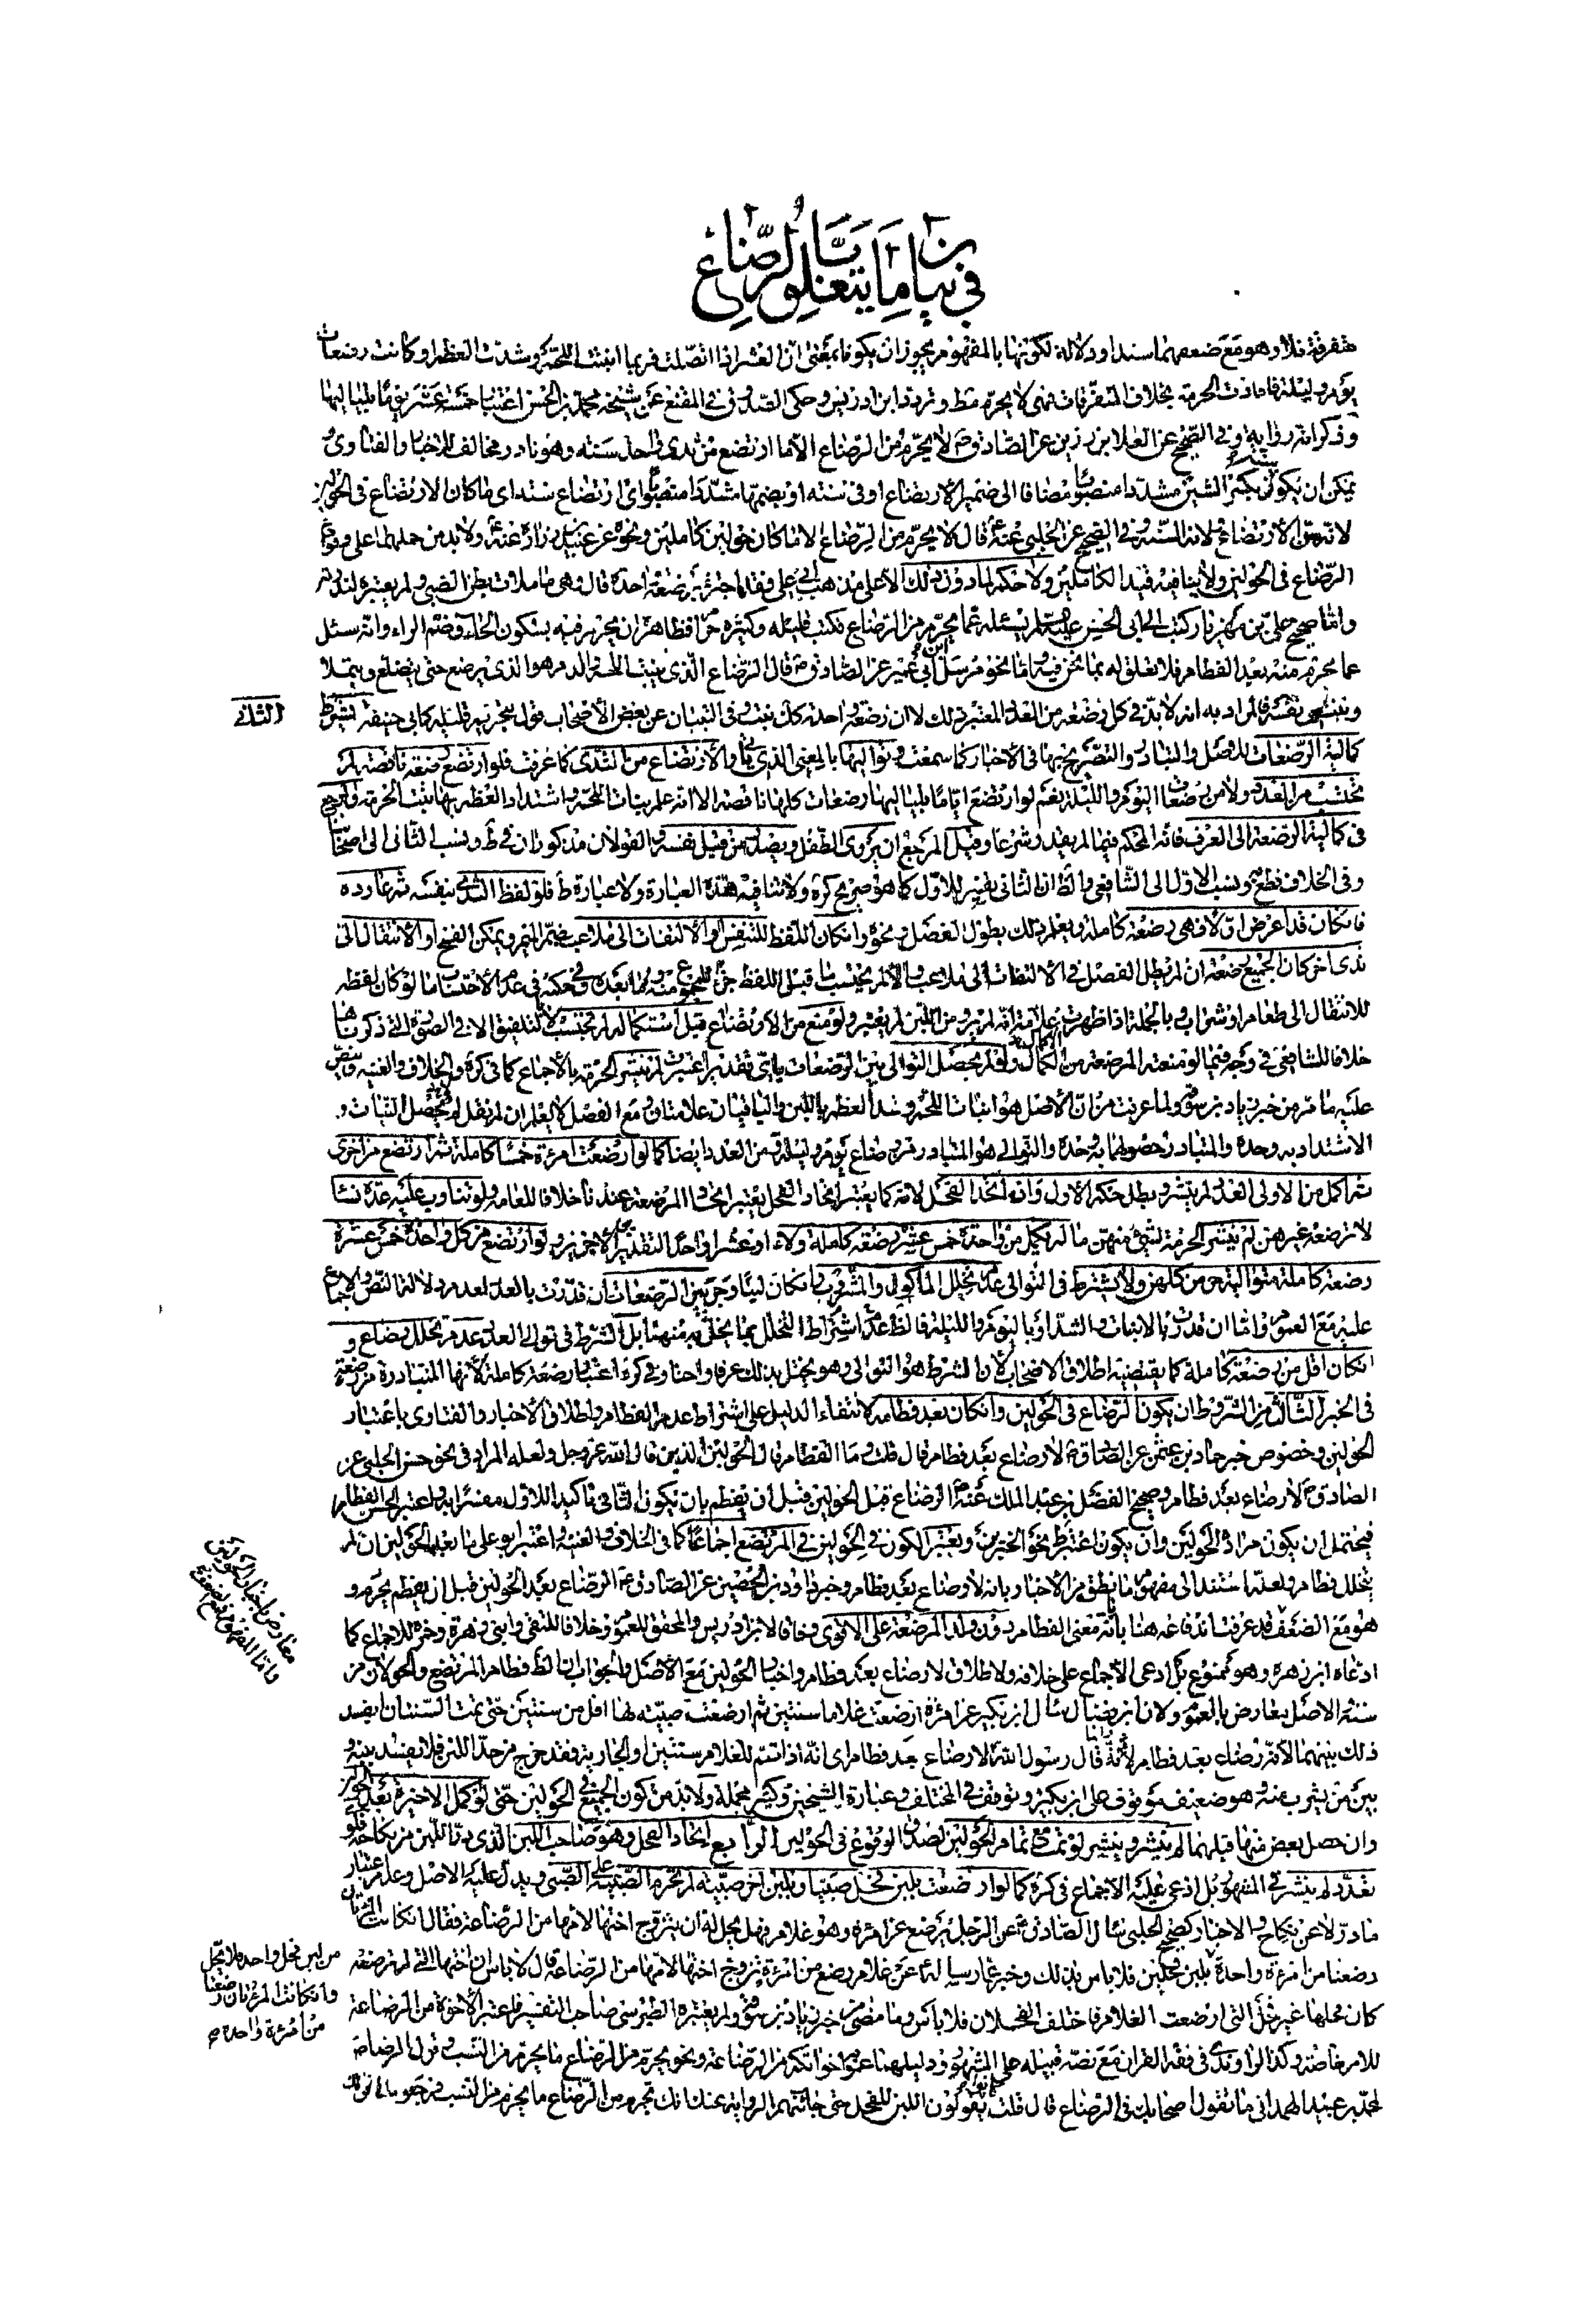 في بيان ما يتعلق بالرضاع
متفرقة فلا وهو مع ضعفهما سندا ودلالة لكونها بالمفهوم يجوز ان يكونا بمعنى ان العشر اذا اتصلت فربما انبتت اللحم وشدت العظم او كانت رضعات
يوم وليلة فافادت الحرمة بخلاف المتفرقات فهى لا يحرم قط وتردد ابن ادريس وحكى الصدوق فى المقنع عن شيخه محمد بن الحسن اعتبار خمسة عشر يوما بلياليها
وذكر انه رواية وفى الصحيح عن العلا بن رزين عن الصادق ع لا يحرم من الرضاع الا ما ارتضع من ثدى واحد سنة وهو نادر مخالف للاخبار والفتاوى و
يمكن ان يكون بكسر السين مشدد منصوبا مضافا الى ضمير الارتضاع او فى سنته او بضمها مشددا منصوبا اى ارتضاع سنة اى ما كان الارتضاع فى الحولين
لانه سن الارتضاع لانه السنة وفى الصحيح عن الحلبى عنه ع قال لا يحرم من الرضاع الا ما كان حولين كاملين ونحوه عن عبيد بن زرارة عنه ع ولا بد من حملهما على وقوع
الرضاع فى الحولين ولا ينافيه قيد الكاملين ولا حكم لما دون ذلك الا على مذهب ابى على فقد اجتزء برضعة واحدة قال وهى ما ملات بطن الصبى ولم يعتبره لندوره
واما صحيح على بن مهزيار كتب الى ابى الحسن عليه السلم يسئله عما يحرم من الرضاع فكتب قليله وكثيره حرام فظاهر ان يحرم فيه بسكون الحاء وضم الراء وانه سئل
عما يحرم منه بعد الفطام فلا تعلق له بما نحن فيه واما نحو مرسل ابن ابى عمير عن الصادق ع قال الرضاع الذى ينبت اللحم والدم هو الذى يرضع حتى يتضلع ويتملا
وينتهى نفسه فالمراد به انه لا بد فى كل رضعة من العدد المعتبر ذلك لا ان رضعة واحدة كك تنبت وفى التبيان عن بعض الاصحاب قول بتحريم قليله كابى حنيفة ويشترط
الثانى
كمالية الرضعات للاصل والتبادر والتصريح بها فى الاخبار كما سمعت وتواليها بالمعنى الذى ياتى والارتضاع من الثدى كما عرفت فلو ارتضع رضعة ناقصة لم
يحتسب من العدد ولا من رضعات اليوم والليلة نعم لو ارتضع اياما بلياليها رضعات كلها ناقصة الا انه علم بنات اللحم واشتداد العظم بها ثبتت الحرمة والمرجع
فى كمالية الرضعة الى العرف فانه المحكم فيما لم يقدر شرعا وقيل المرجع ان يروى الطفل ويصدر من قبل نفسه والقولان مذكوران فى ط ونسب الثانى الى اصحابنا
وفى الخلاف قطع به ونسب الاول الى الشافعى والظ ان الثانى تفسير للاول كما هو صريح كره ولا تنافيه هذه العبارة ولا عبارة ط فلو لفظ الثدى بنفسه ثم عاوده
فان كان قد اعرض اولا فهى رضعة كاملة ويعلم ذلك بطول الفصل ونحوه وان كان اللفظ للتنفس او الالتفات الى ملاعب بضم الميم ويمكن الفتح او الانتقال الى
ثدى اخر كان الجميع رضعة ان لم يطل الفصل فى الالتفات الى ملاعب والا لم يحتسب ما قبل اللفظ جزء للمجموع منه وما بعده وفى حكمه فى عدم الاحتساب ما لو كان لفظه
للانتقال الى طعام او شراب وبالجملة اذا ظهرت علامة انه لم يرو من اللبن لم يعتبر ولو منع من الارتضاع قبل استكماله لم يحتسب لانه لا تلفيق الا فى الصورة التى ذكرناها
خلافا للشافعى فى وجه فيما لو منعته المرضعة من الاكمال ولو لم يحصل التوالى بين الرضعات باى تقدير اعتبرت لم ينشر الحرمة بالاجماع كما فى كره والخلاف والغنية وينص
عليه ما مر من خبر زياد بن سوقة ولما عرفت من ان الاصل هو انبات اللحم وشد العظم باللبن والباقيان علامتان ومع الفصل لا يعلم ان لم نقل لم يحصل النبات و
الاشتداد به وحده والمتبادر حصولهما به وحده والتوالى هو المتبادر من رضاع يوم وليلة ومن العدد ايضا كما لو ارضعت امرءة خمسا كاملة ثم ارتضع من اخرى
ثم اكمل من الاولى العدد لم ينشر وبطل حكم الاول وان اتحد الفحل لانه كما يعتبر اتحاد الفحل يعتبر اتحاد المرضعة عندنا خلافا للعامة ولو تناوب عليه عدة نساء
لا ترضعه غيرهن لم ينشر الحرمة لشىء منهن ما لم يكمل من واحدة خمس عشرة رضعة كاملة ولاء او عشرا واحد التقديرين الاخيرين ولو ارتضع من كل واحدة خمس عشرة
رضعة كاملة متوالية حرمن كلهن ولا يشترط فى التوالى عدم تخلل الماكول والمشروب وان كان لبنا وجر بين الرضعات ان قدرت بالعدد لعدم دلالة النص والاجماع
عليه مع العموم واما ان قدرت بالانبات والشد او باليوم والليلة فالظ عدم اشتراط التخلل بما يخل به منهما بل الشرط فى توالى العدد عدم تخلل رضاع و
ان كان اقل من رضعة كاملة كما يقتضيه اطلاق الاصحاب لان الشرط هو التوالى وهو يختل بذلك عرفا واختار فى كره اعتبار رضعة كاملة لانها المتبادرة من رضعة
فى الخبر الثالث من الشروط ان يكون الرضاع فى الحولين وان كان بعد فطامه لانتفاء الدليل على اشتراط عدم الفطام واطلاق الاخبار والفتاوى باعتبار
الحولين وخصوص خبر حماد بن عثمن عن الصادق ع لا رضاع بعد فطام قال قلت وما الفطام قال الحولين الذين قال الله عز وجل ولعله المراد فى نحو حسن الحلبى عن
الصادق ع لا رضاع بعد فطام وصحيح الفضل بن عبد الملك عنه ع الرضاع قبل الحولين قبل ان يفطم بان يكون الثانى تاكيد اللاول مفسرا به واعتبر الحسن الفطام
فيحتمل ان يكون مراده الحولين وان يكون اعتبر ظ نحو الخبرين ويعتبر الكون فى الحولين فى المرتضع اجماعا كما فى الخلاف والغنية واعتبر ابو على ما بعد الحولين ان لم
يتخلل فطام ولعله استند الى مفهوم ما نطق من الاخبار بانه لا رضاع بعد فطام وخبر داود بن الحصين عن الصادق ع الرضاع بعد الحولين قبل ان يفطم يحرم و
معارض باخبار الحولين
واما المفهوم فمع ضعفه
هو مع الضعف قد عرفت اندفاعه هنا بانه معنى الفطام دون ولد المرضعة على الاقوى وفاقا لابن ادريس والمحقق للعموم وخلافا للتقى وابنى زهرة وحمزة للاجماع كما
ادعاه ابن زهرة وهو ممنوع بل ادعى الاجماع على خلافه ولاطلاق لا رضاع بعد فطام واخبار الحولين مع الاصل والجواب ان الظ فطام المرتضع والحولان من
سنه والاصل يعارض بالعموم ولان ابن فضال سال ابن بكير عن امرءة ارضعت غلاما سنتين ثم ارضعت صبية لها اقل من سنتين حتى تمت السنتان ايفسد
ذلك بينهما قال لا يفسد ذلك بينهما لانه رضاع بعد فطام وانما قال رسول الله ص لا رضاع بعد فطام اى انه اذا تم للغلام سنتين او الجارية فقد خرج من حد اللبن فلا يفسد بينه و
بين من يشرب منه وهو ضعيف موقوف على ابن بكير وتوقف فى المختلف وعبارة الشيخين وكثير مجملة ولا بد من كون الجميع فى الحولين حتى لو كمل الاخيرة بعد الحولين
وان حصل بعض منها قبلهما لم ينشر وينشر لو تمت مع تمام الحولين لصدق الوقوع فى الحولين الرابع اتحاد الفحل وهو صاحب اللبن الذى در اللبن من نكاحه فلو
تعدد لم ينشر فى المشهور بل ادعى عليه الاجماع فى كره كما لو ارضعت بلبن فحل صبيا وبلبن اخر صبية لم تحرم الصبية على الصبى ويدل عليه الاصل وعلى اعتبار
ما در لا عن نكاح والاخبار كصحيح الحلبى سال الصادق ع عن الرجل يرضع من امرءة وهو غلام فهل يحل له ان يتزوج اختها لامها من الرضاعة فقال ان كانت المرءتان
رضعتا من امرءة واحدة بلبن فحلين فلا باس بذلك وخبر عمار ساله ع عن غلام رضع من امرءة يتزوج اختها لابيها من الرضاعة قال لا باس ان اختها التى لم ترضعه
من لبن فحل واحد فلا يحل
وان كانت المرءتان رضعتا
من امرءة واحدة صح
كان فحلها غير فحل التى ارضعت الغلام فاختلف الفحلان فلا باس وما مضى من خبر زياد بن سوقة ولم يعتبره الطبرسى صاحب التفسير فاعتبر الاخوة من الرضاعة
للام خاصة وكذا الراوندى فى فقه القران مع نصه قبيله على المشهور ودليلهما عموم اخواتكم من الرضاعة ونحو يحرم من الرضاع ما يحرم من النسب وقول الرضا ع
لمحمد بن عبيد الهمدانى ما يقول اصحابك فى الرضاع قال قلت كانوا يقولون اللبن للفحل حتى جائتهم الرواية عنك انك تحرم من الرضاع ما يحرم من النسب فرجعوا الى قولك